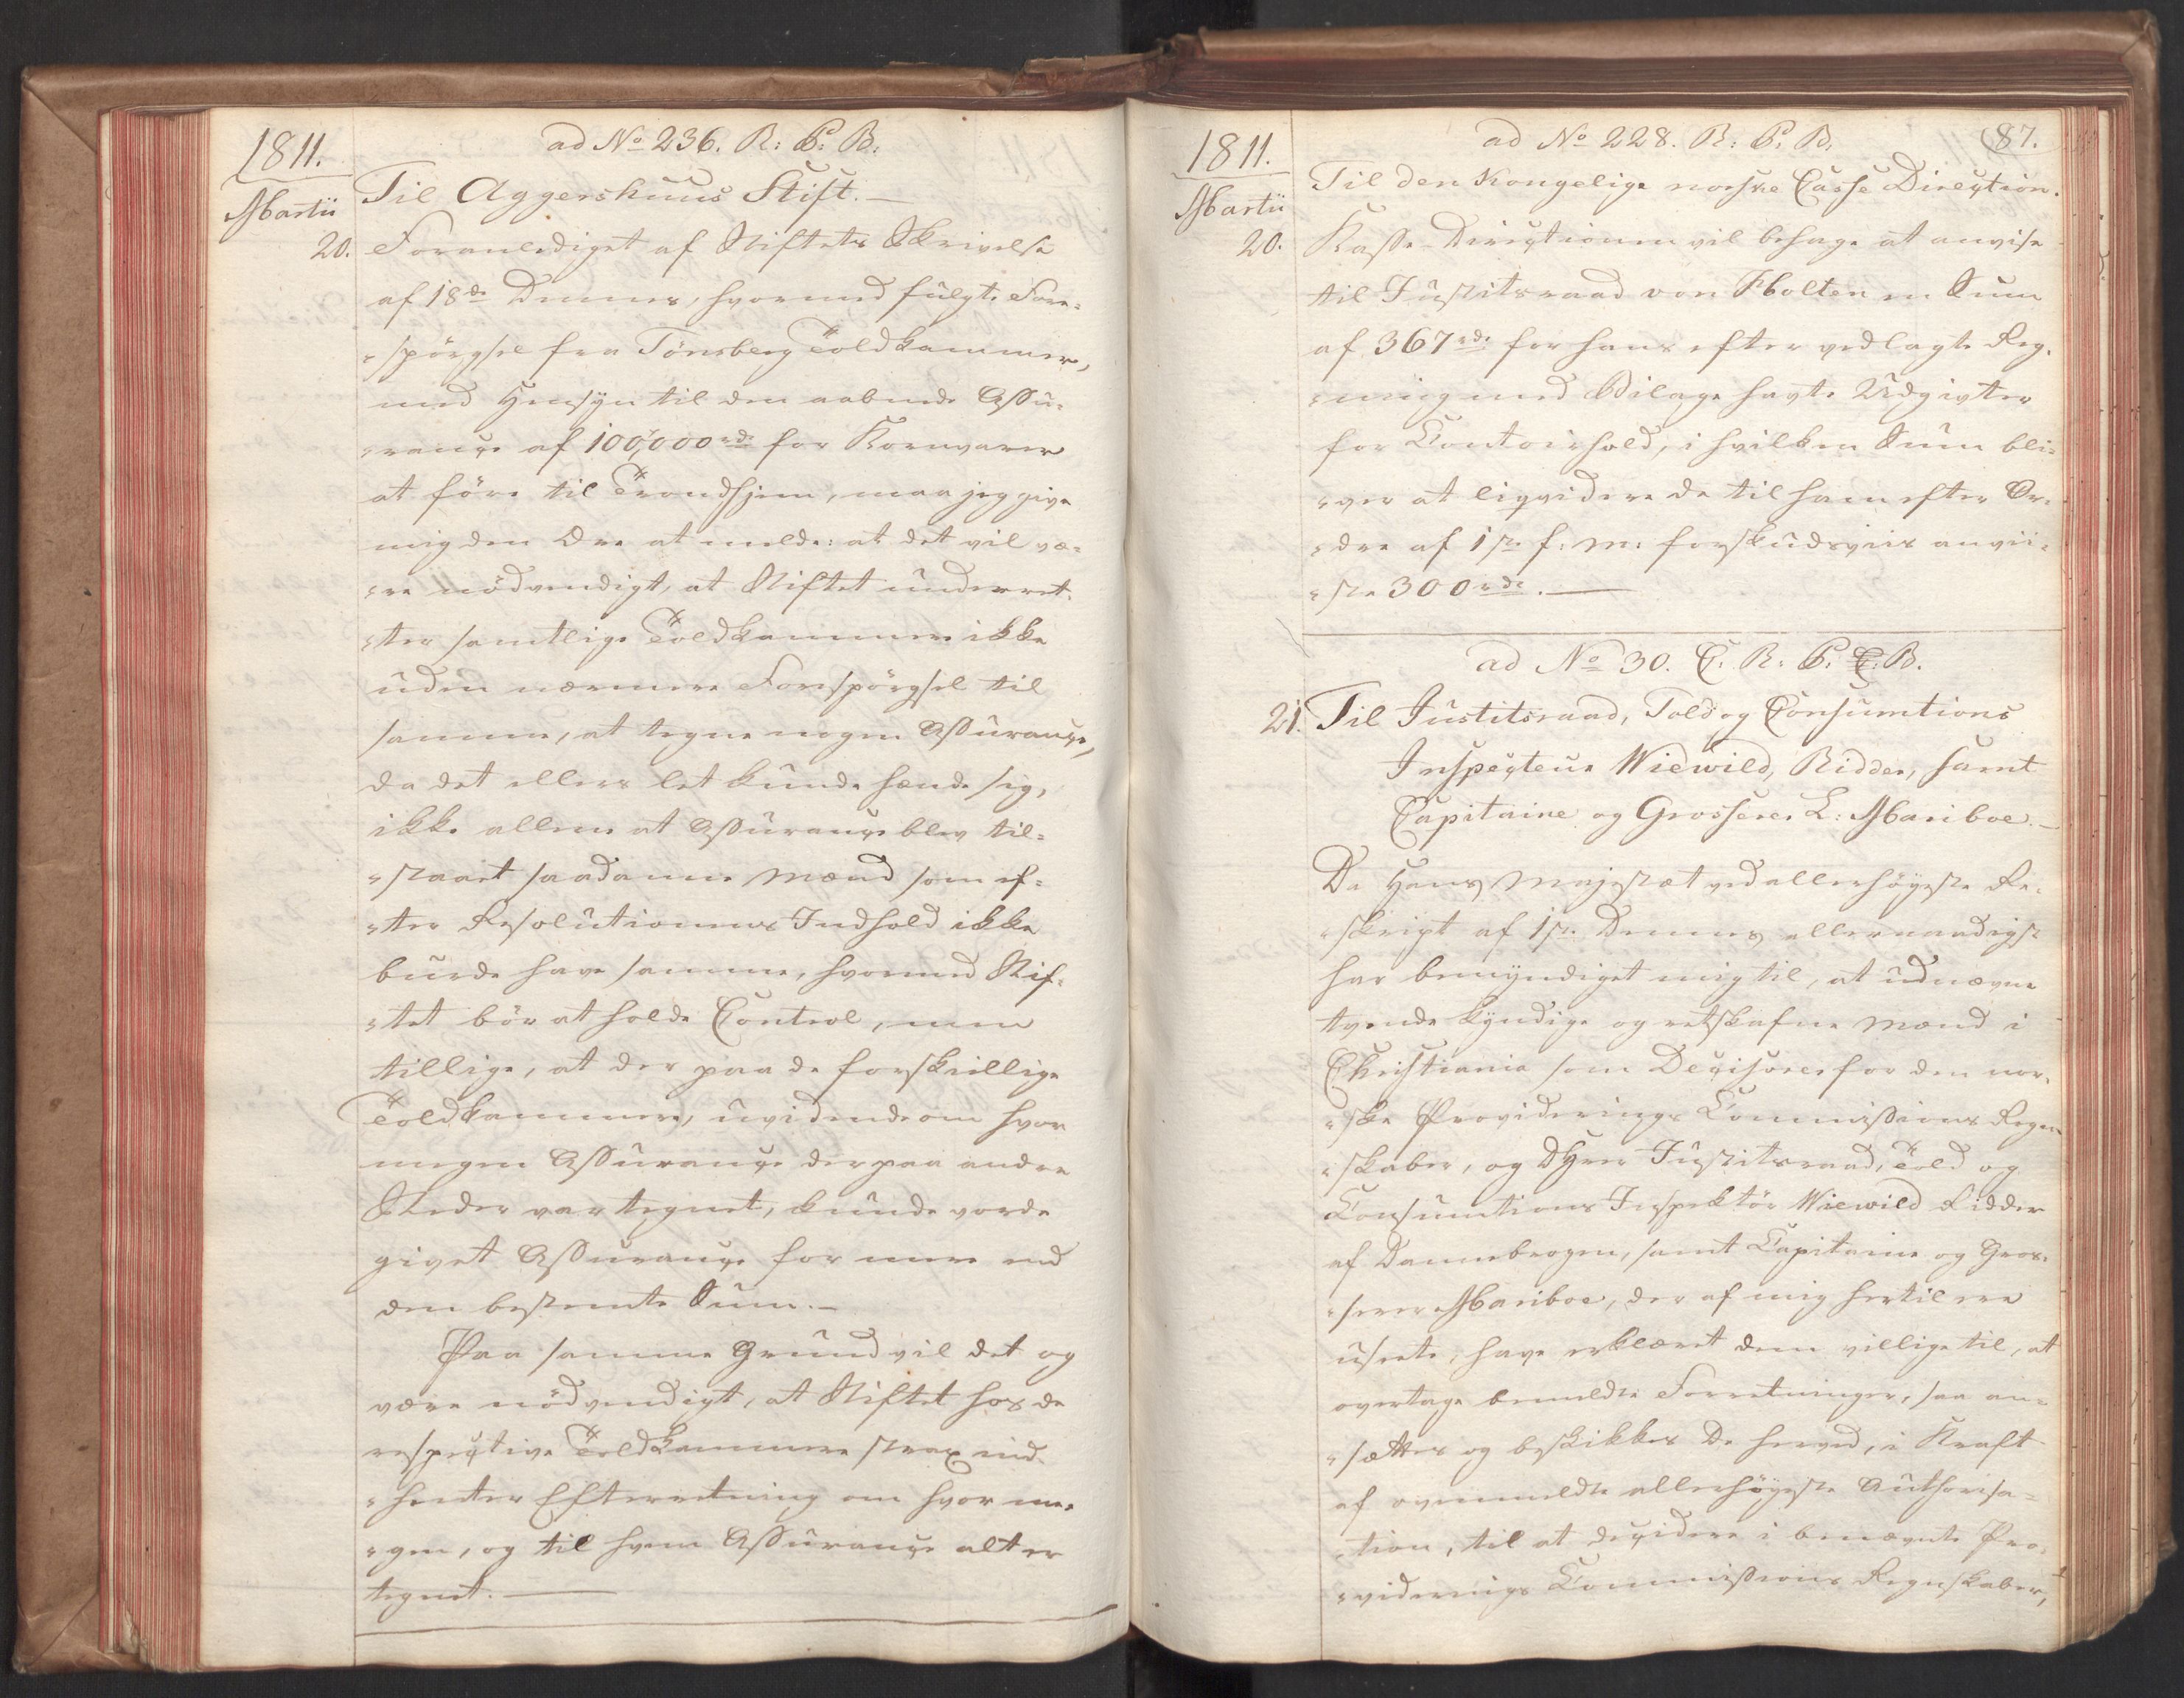 1811.
ad No 236. R: C: B:
Martii
Til Aggershuus Stift.
20. Foranlediget af Stiftets Skrivelse
af 18de Dennes, hvormed fulgte Fore-
-spörgsel fra Tönsberg Toldkammer,
med Hensyn til den aabnede Assu-
-rance af 100,000 rd. for Kornvarer
at före til Trondhjem, maa jeg give
mig den Ære at melde: at det vil væ-
-re nödvendigt, at Stiftet underret-
-ter samtlige Toldkammere ikke
uden nærmere Forespörgsel til
samme, at tegne nogen Assurance,
da det ellers let kunde hænde sig,
ikke allene at Assurance blev til-
-staaet saadanne Mænd som ef-
-ter Resolutionens Indhold ikke
burde have samme, hvormed Stif-
-tet bör at holde Control, men
tillige, at der paa de forskiellige
Toldkammere, uvidende om hvor
megen Assurance der paa andre
Steder var tegnet, kunde vorde
givet Assurance for mere end
den bestemte Sum.
Paa samme Grund vil det og
være nödvendigt, at Stiftet hos de
respective Toldkammere strax ind-
-henter Efterretning om hvor me-
-gen, og til hvem Assurance alt er
tegnet.
1811.
ad No 228. R: C: B.
87.
Martii
Til den Kongelige norske Casse Direction.
20. Kasse-Directionen vil behage at anvise
til Justitsraad von Holten en Sum
af 367 rd. for hans efter vedlagte Reg-
-ning med Bilage havte Udgivter
for Contoirhold, i hvilken Sum bli-
-ver at liqvidere de til ham efter Or-
-dre af 1ste f: m: forskudsviis anvii-
-ste 300 rd.
ad No 30. C. R: C: C: B.
21. Til Justitsraad, Told og Consumtions
Inspecteur Wiewild, Ridder, samt
Capitaine og Grosserer L: Mariboe.
Da Hans Majestæt ved allerhöyeste Re-
-skript af 1ste Dennes allernaadigst
har bemyndiget mig til, at udnævne
tvende kyndige og retskafne Mænd i
Christiania som Decisorer for den nor-
-ske Provideringe Commissions Regn-
-skaber, og DHrr Justitsraad, Told og
Consumtions Inspektör Wiewild Ridder
af Dannebrogen, samt Capitaine og Gros-
-serer Mariboe, der af mig hertil ere
udseete, have erklæret dem villige til, at
overtage bemeldte Forretninger, saa an-
-sættes og beskikkes De herved, i Kraft
af ovenmeldte allerhöyeste Authorisa-
-tion, til at decidere i benævnte Pro-
-viderings Commissions Regnskaber,